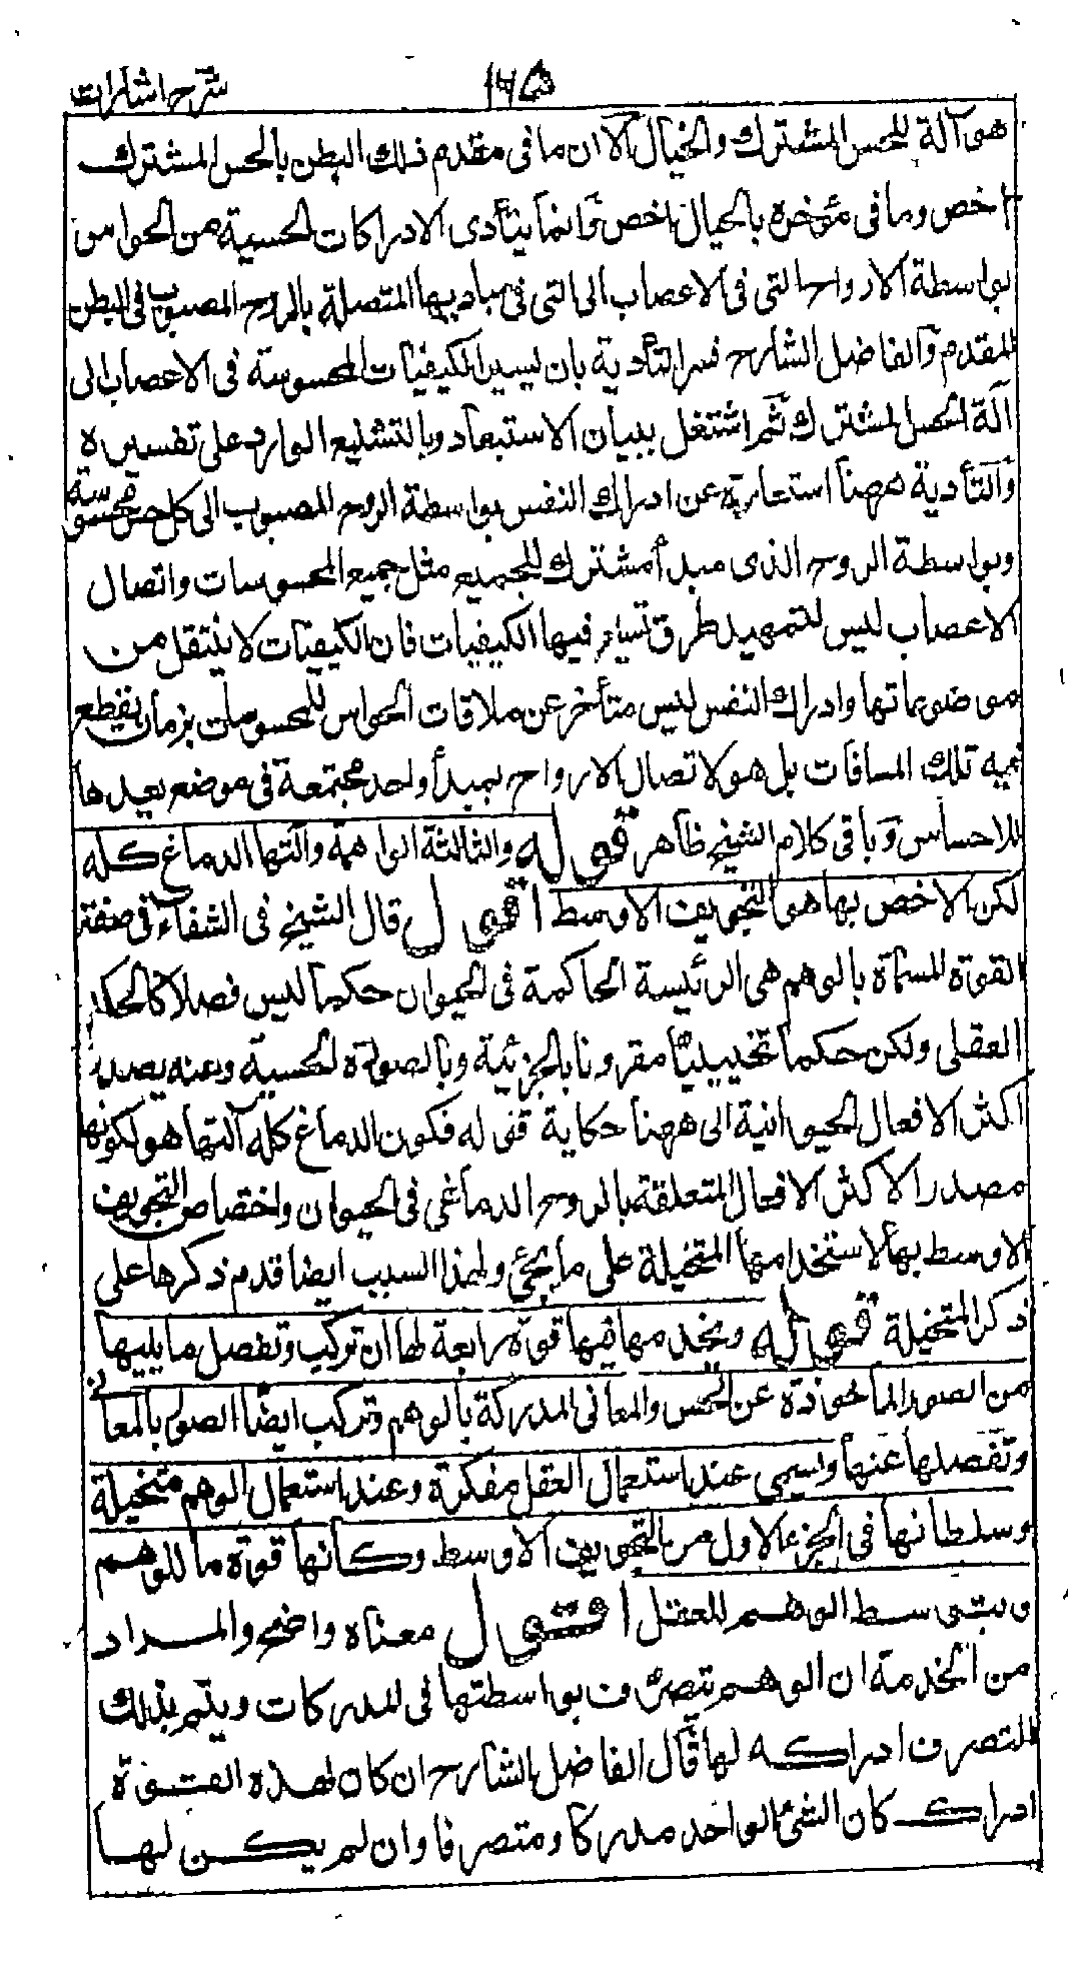 شرح اشارات
١٦٥
هى آلة للحس المشترك والخيال الا ان ما فى مقدم ذلك البطن بالحس المشترك
اخص وما فى مؤخره بالخيال اخص وانما يتأدى الادراكات الحسية من الحواس
بواسطة الارواح التى فى الاعصاب الى التى فى مباديها المتصلة بالروح المصبوب فى البطن
المقدم والفاضل الشارح فسر التأدية بان يسير الكيفيات المحسوسة فى الاعصاب الى
آلة الحس المشترك ثم اشتغل ببيان الاستبعاد وبالتشنيع الوارد على تفسيره
والتأدية ههنا استعارة عن ادراك النفس بواسطة الروح المصبوب الى كل حس محسوسة
وبواسطة الروح الذى مبدأ مشترك للجميع مثل جميع المحسوسات واتصال
الاعصاب ليس لتمهيد طرق تسير فيها الكيفيات فان الكيفيات لا ينتقل من
موضوعاتها وادراك النفس ليس متأخر عن ملاقات الحواس للمحسوسات بزمان يقطع
فيه تلك المسافات بل هو لاتصال الارواح بمبدأ واحد مجتمعة فى موضع يعيدها
للاحساس وباقى كلام الشيخ ظاهر قوله والثالثة الواهمة وآلتها الدماغ كله
لكن الاخص بها هو التجويف الاوسط اقول قال الشيخ فى الشفاء فى صفة
القوة المسماة بالوهم هى الرئيسة الحاكمة فى الحيوان حكما ليس فصلا كالحكم
العقلى ولكن حكما تخييليا مقرونا بالجزئية وبالصورة الحسية وعنه يصدر
اكثر الافعال الحيوانية الى ههنا حكاية قوله فكون الدماغ كله آلتها هو لكونها
مصدر الاكثر الافعال المتعلقة بالروح الدماغى فى الحيوان واختصاص التجويف
الاوسط بها لاستخدامها المتخيلة على ما يجئ ولهذا السبب ايضا قدم ذكرها على
ذكر المتخيلة قوله ويخدمها فيها قوة رابعة لها ان تركب وتفصل ما يليها
من الصور المأخوذة عن الحس والمعانى المدركة بالوهم وتركب ايضا الصور بالمعانى
وتفصلها عنها وتسمى عند استعمال العقل مفكرة وعند استعمال الوهم متخيلة
وسلطانها فى الجزء الاول من التجويف الاوسط وكأنها قوة ما للوهم
وبتوسط الوهم للعقل اقول معناه واضح والمراد
من الخدمة ان الوهم يتصرف بواسطتها فى المدركات ويتم بذلك
التصرف ادراكه لها قال الفاضل الشارح ان كان لهذه القوة
ادراك كان الشئ الواحد مدركا ومتصرفا وان لم يكن لها